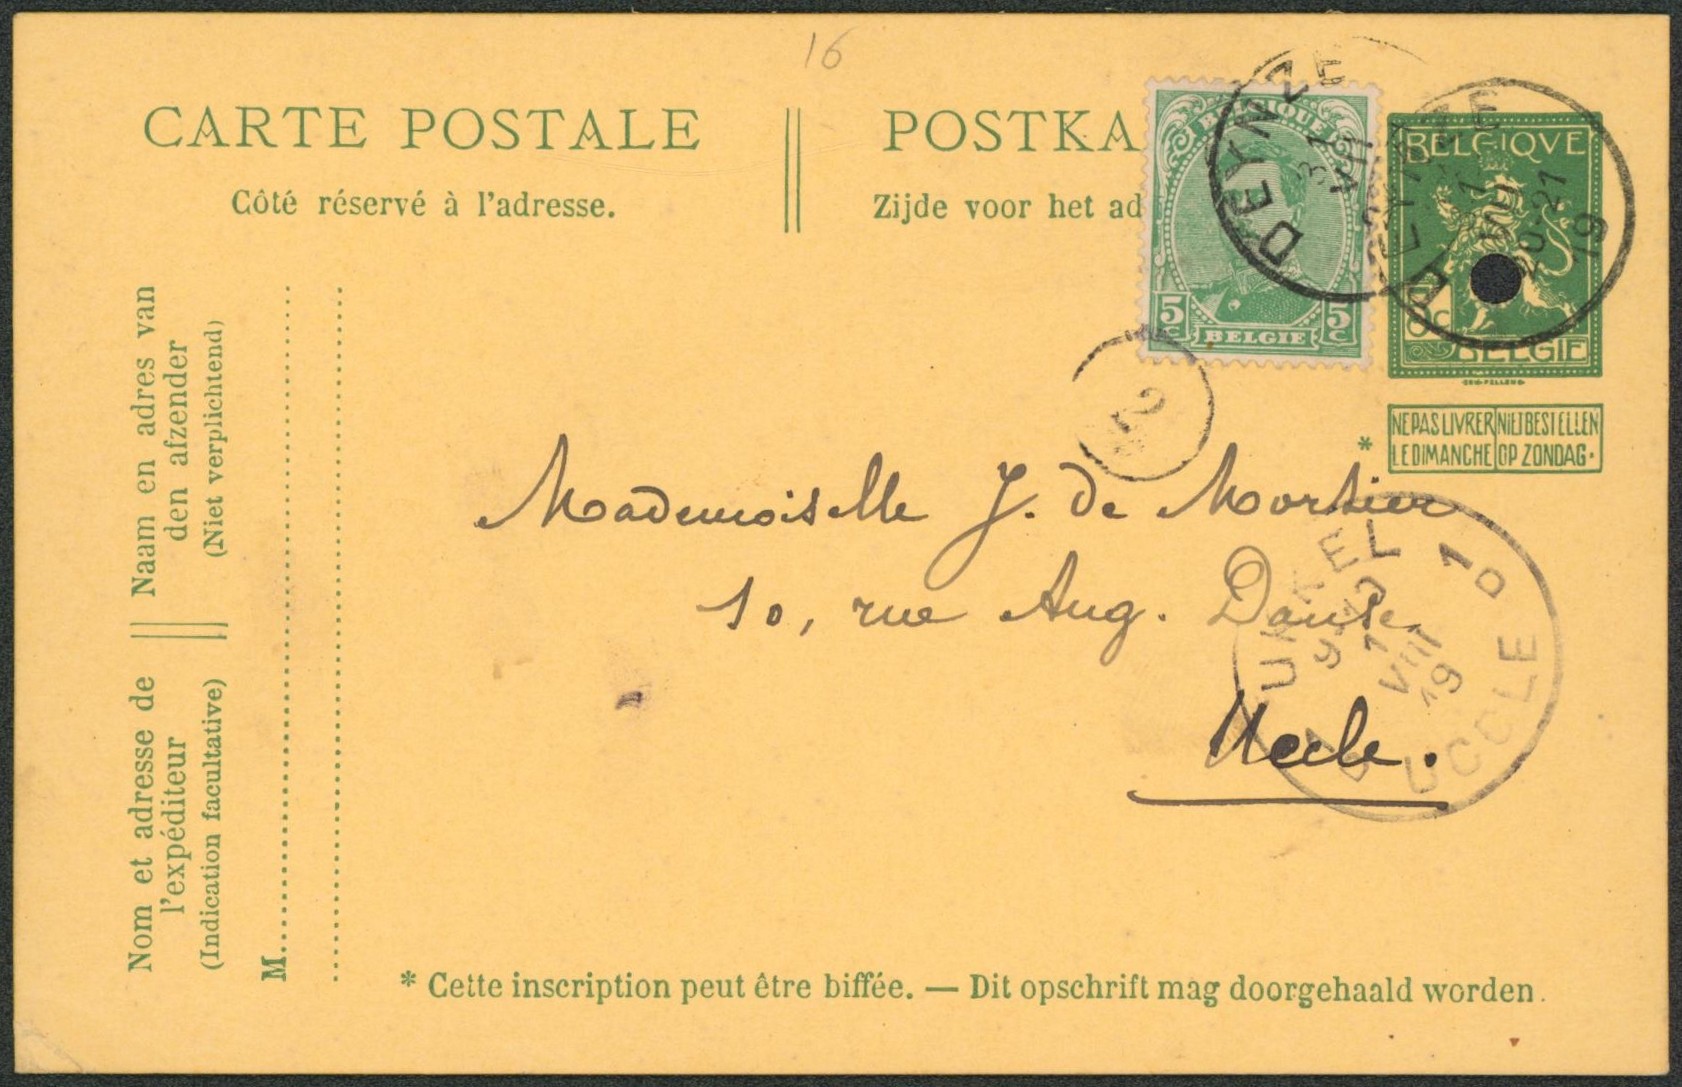 16
CARTE POSTALE
Côté réservé à l'adresse.
POSTKA
Zijde voor het ad
BELGIQUE
5c 5c
BELGIE
DEYNZE
31
VIII
BELGIQVE
BELGIE
DEYNZE
31
VIII
20-21
19
NE PAS LIVRER LE DIMANCHE
NIET BESTELLEN OP ZONDAG.
*
Mademoiselle J. de Mortier
10, rue Aug. Danse
Uccle.
UKKEL 1D
1
VIII
19
UCCLE
Naam en adres van
den afzender
(Niet verplichtend)
Nom et adresse de
l'expéditeur
(Indication facultative)
M
* Cette inscription peut être biffée. — Dit opschrift mag doorgehaald worden.